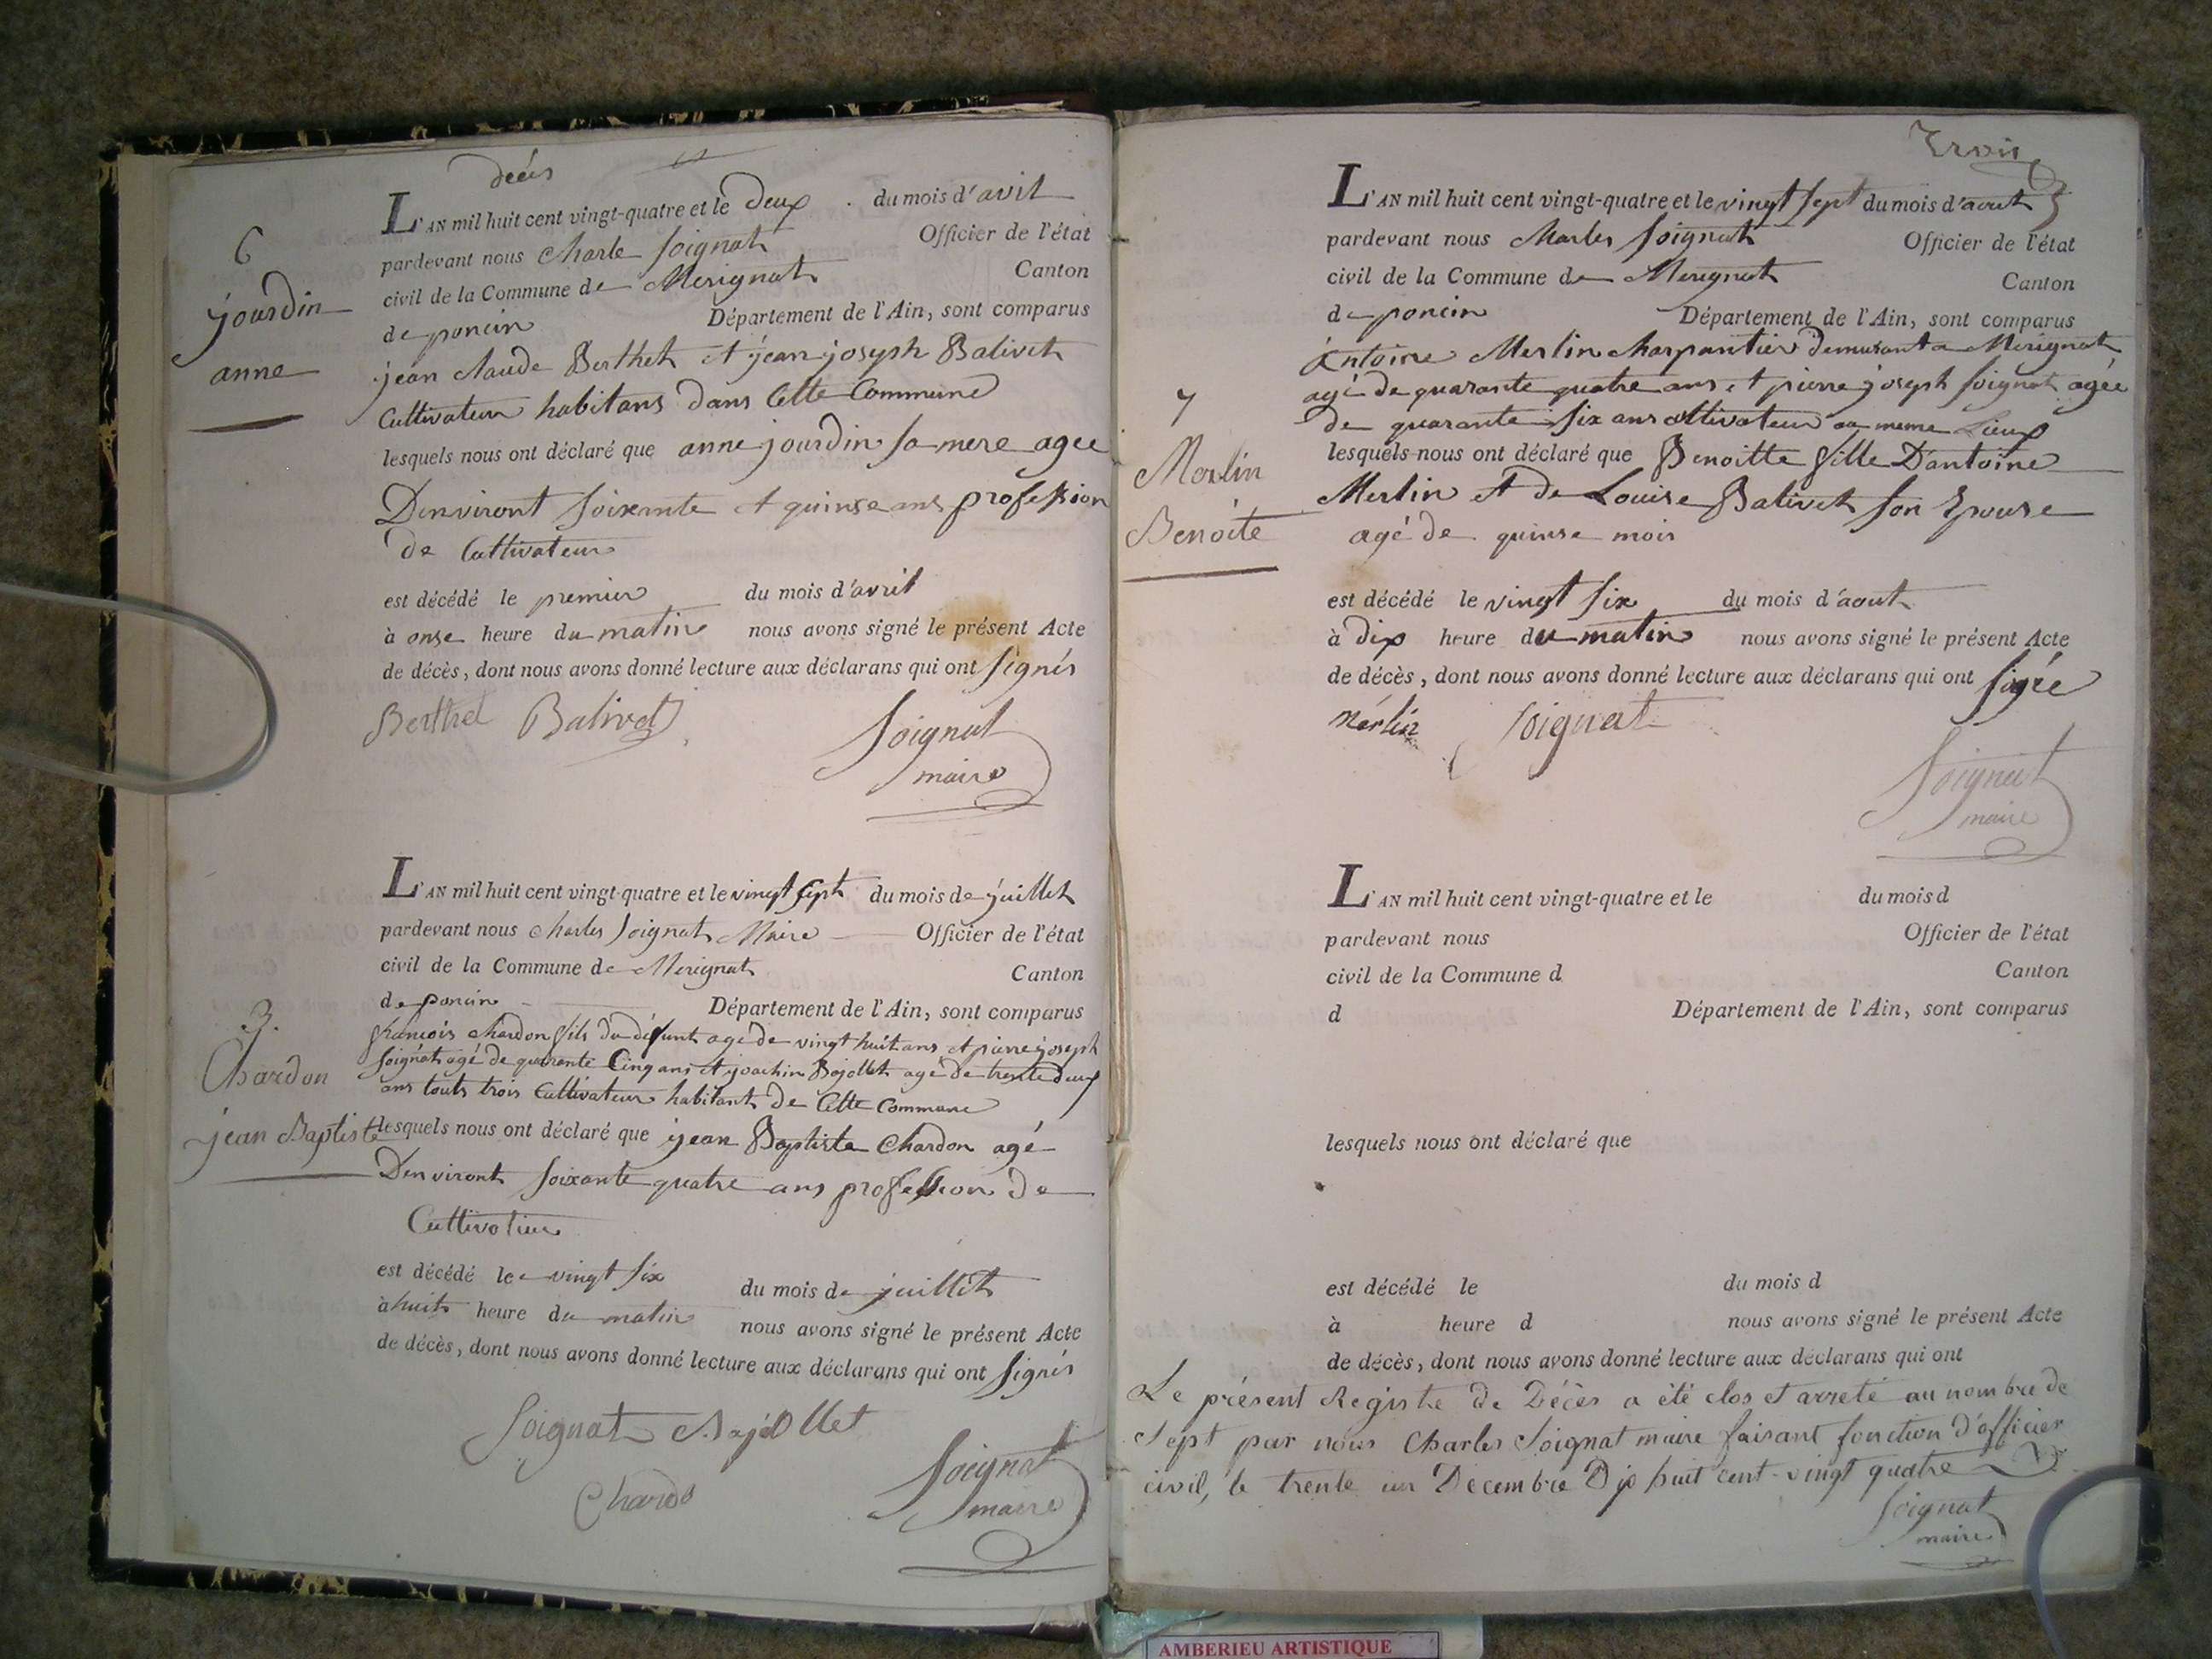 décès
L'AN mil huit cent vingt-quatre et le deux du mois d'avil
pardevant nous Charle Soignat Officier de l'état
civil de la Commune de Merignat Canton
de poncin Département de l'Ain, sont comparus
jean Claude Berthet et jean joseph Balivet
Cultivateur habitans dans Cette Commune
lesquels nous ont déclaré que anne jourdin sa mere agee
Denviront soixante et quinse ans profession
de Cultivateur
est décédé le premier du mois d'avril
à onse heure du matin nous avons signé le présent Acte
de décès, dont nous avons donné lecture aux déclarans qui ont signés
Berthet Balivet Soignat
maire
6
jourdin
anne
L'AN mil huit cent vingt-quatre et le vingt sept du mois de juillet
pardevant nous charles Soignat Maire Officier de l'état
civil de la Commune de Merignat Canton
de poncin Département de l'Ain, sont comparus
francois chardon fils du défunt agé de vingt huit ans et pierre joseph
Soignat agé de quarante Cinq ans et joachin Bajollet agé de trente deux
ans touts trois Cultivateur habitant de Cette Commune
lesquels nous ont déclaré que jean Baptiste Chardon agé
Denviront soixante quatre ans profession de
Cultivateur
est décédé le vingt six du mois de juillet
à huit heure du matin nous avons signé le présent Acte
de décès, dont nous avons donné lecture aux déclarans qui ont signés
Soignat Bajollet
Chardo Soignat
maire
3.
Chardon
jean Baptiste
Trois
L'AN mil huit cent vingt-quatre et le vingt sept du mois d'aout
pardevant nous Charles Soignat Officier de l'état
civil de la Commune de Merignat Canton
de poncin Département de l'Ain, sont comparus
Antoine Merlin charpantier demurant a Merignat
agé de quarante quatre ans et pierre joseph Soignat agée
de quarante six ans cultivateur au meme Lieux
lesquels nous ont déclaré que Benoitte fille D'antoine
Merlin et de Louise Balivet son Epouse
agé de quinse mois
est décédé le vingt six du mois d'aout
à dix heure du matin nous avons signé le présent Acte
de décès, dont nous avons donné lecture aux déclarans qui ont signe
Merlin Soignat
Soignat
maire
7
Merlin
Benoite
L'AN mil huit cent vingt-quatre et le du mois d
pardevant nous Officier de l'état
civil de la Commune d Canton
d Département de l'Ain, sont comparus
lesquels nous ont déclaré que
est décédé le du mois d
à heure d nous avons signé le présent Acte
de décès, dont nous avons donné lecture aux déclarans qui ont
Le présent Registre de Décès a été clos et arreté au nombre de
sept par nous Charles Soignat maire faisant fonction d'officier
civil, le trente un Decembre Dix huit cent vingt quatre
Soignat
maire
AMBERIEU ARTISTIQUE